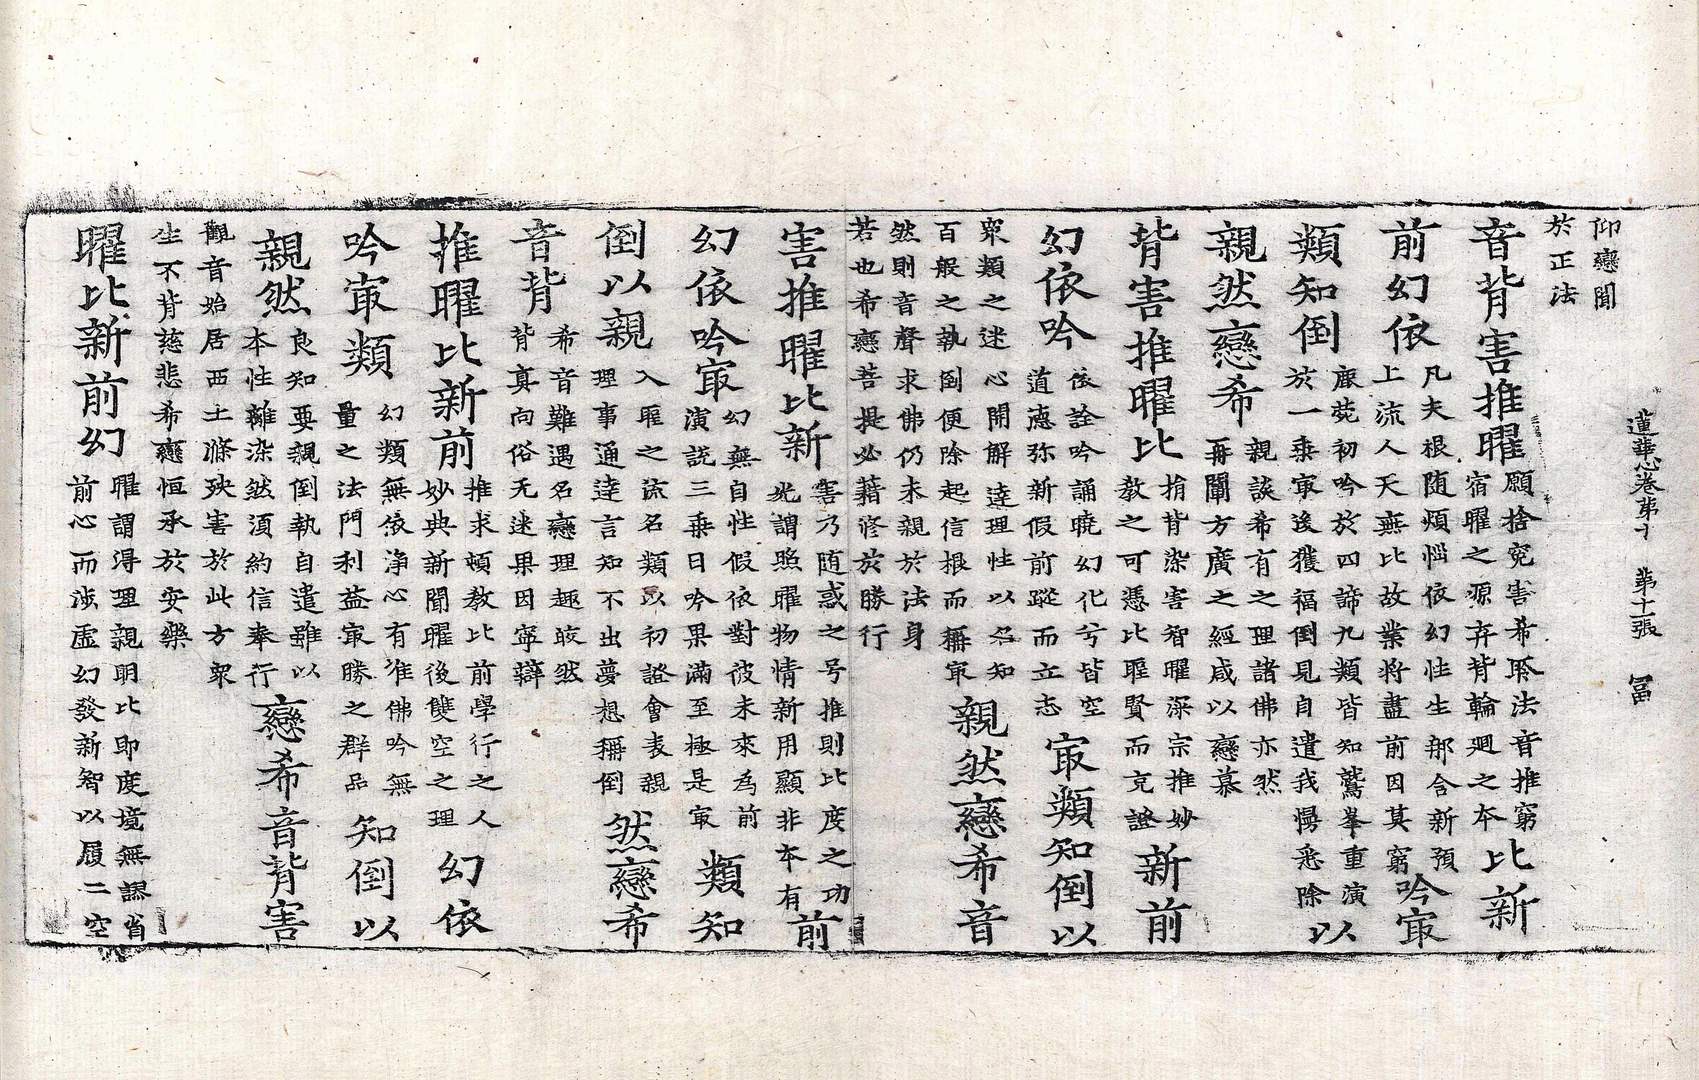 蓮華心卷第十　第十一張　冨
仰戀聞
於正法
音背害推曜
願捨寃害希聆法音推窮
宿曜之源弃背輪迴之本
比新
前幻依
凡夫根随煩惱依幻性生那含新預
上流人天無比故業將盡前因其窮
吟㝡
類知倒
鹿苑初吟於四諦九類皆知鷲峯重演
於一乗㝡後獲福倒見自遣我慢悉除
以
親然戀希
親談希有之理諸佛亦然
再闡方廣之經咸以戀慕
背害推曜比
捐背染害智曜深宗推妙
教之可憑比聖賢而克證
新前
幻依吟
依詮吟誦曉幻化兮皆空
道德弥新假前蹤而立志
㝡類知倒以
衆類之迷心開解達理性以名知
百般之執倒便除起信根而稱㝡
親然戀希音
然則音聲求佛仍未親於法身
若也希戀菩提必藉修於勝行
害推曜比新
害乃随惑之号推則比度之功
光謂照曜物情新用顯非本有
前
幻依吟㝡
幻無自性假依對彼未來為前
演説三乗日吟果滿至極是㝡
類知
倒以親
入聖之流名類以初證會表親
理事通達言知不出夢想稱倒
然戀希
音背
希音難遇名戀理趣皎然
背真向俗无迷果因寧辯
推曜比新前
推求頓教比前學行之人
妙典新聞曜後雙空之理
幻依
吟㝡類
幻類無依淨心有准佛吟無
量之法門利益㝡勝之群品
知倒以
親然
良知要親倒執自遣雖以
本性離染然須約信奉行
戀希音背害
觀音始居西土滌殃害於此方衆
生不背慈悲希戀恒承於安樂
曜比新前幻
曜謂得理親明比即度境無謬省
前心而涉虛幻發新智以履二空